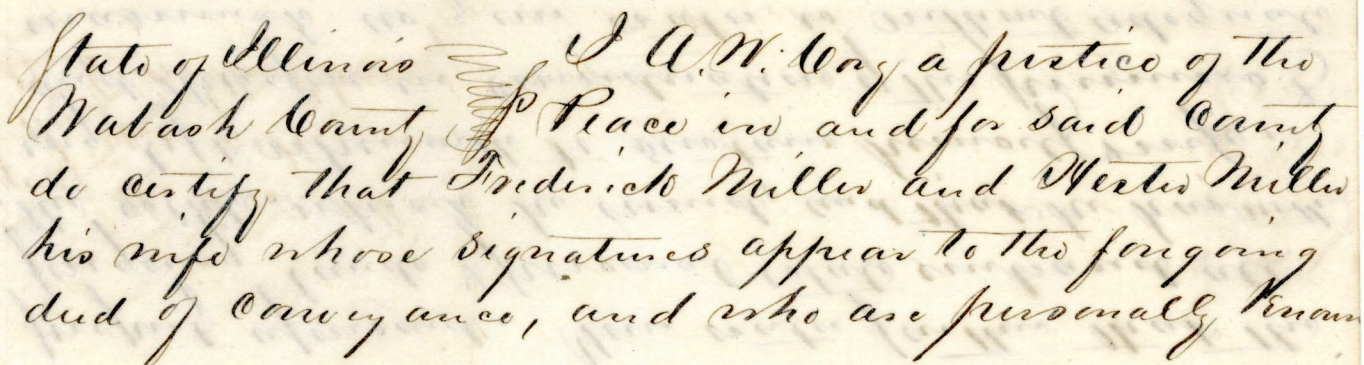 State of Illinois I A. W. Cory a justice of the
Wabash County Peace in and for said County
do certify that Frederick Miller and Hester Miller
his wife whose signatures appear to the foregoing
deed of conveyance, and who are personally known